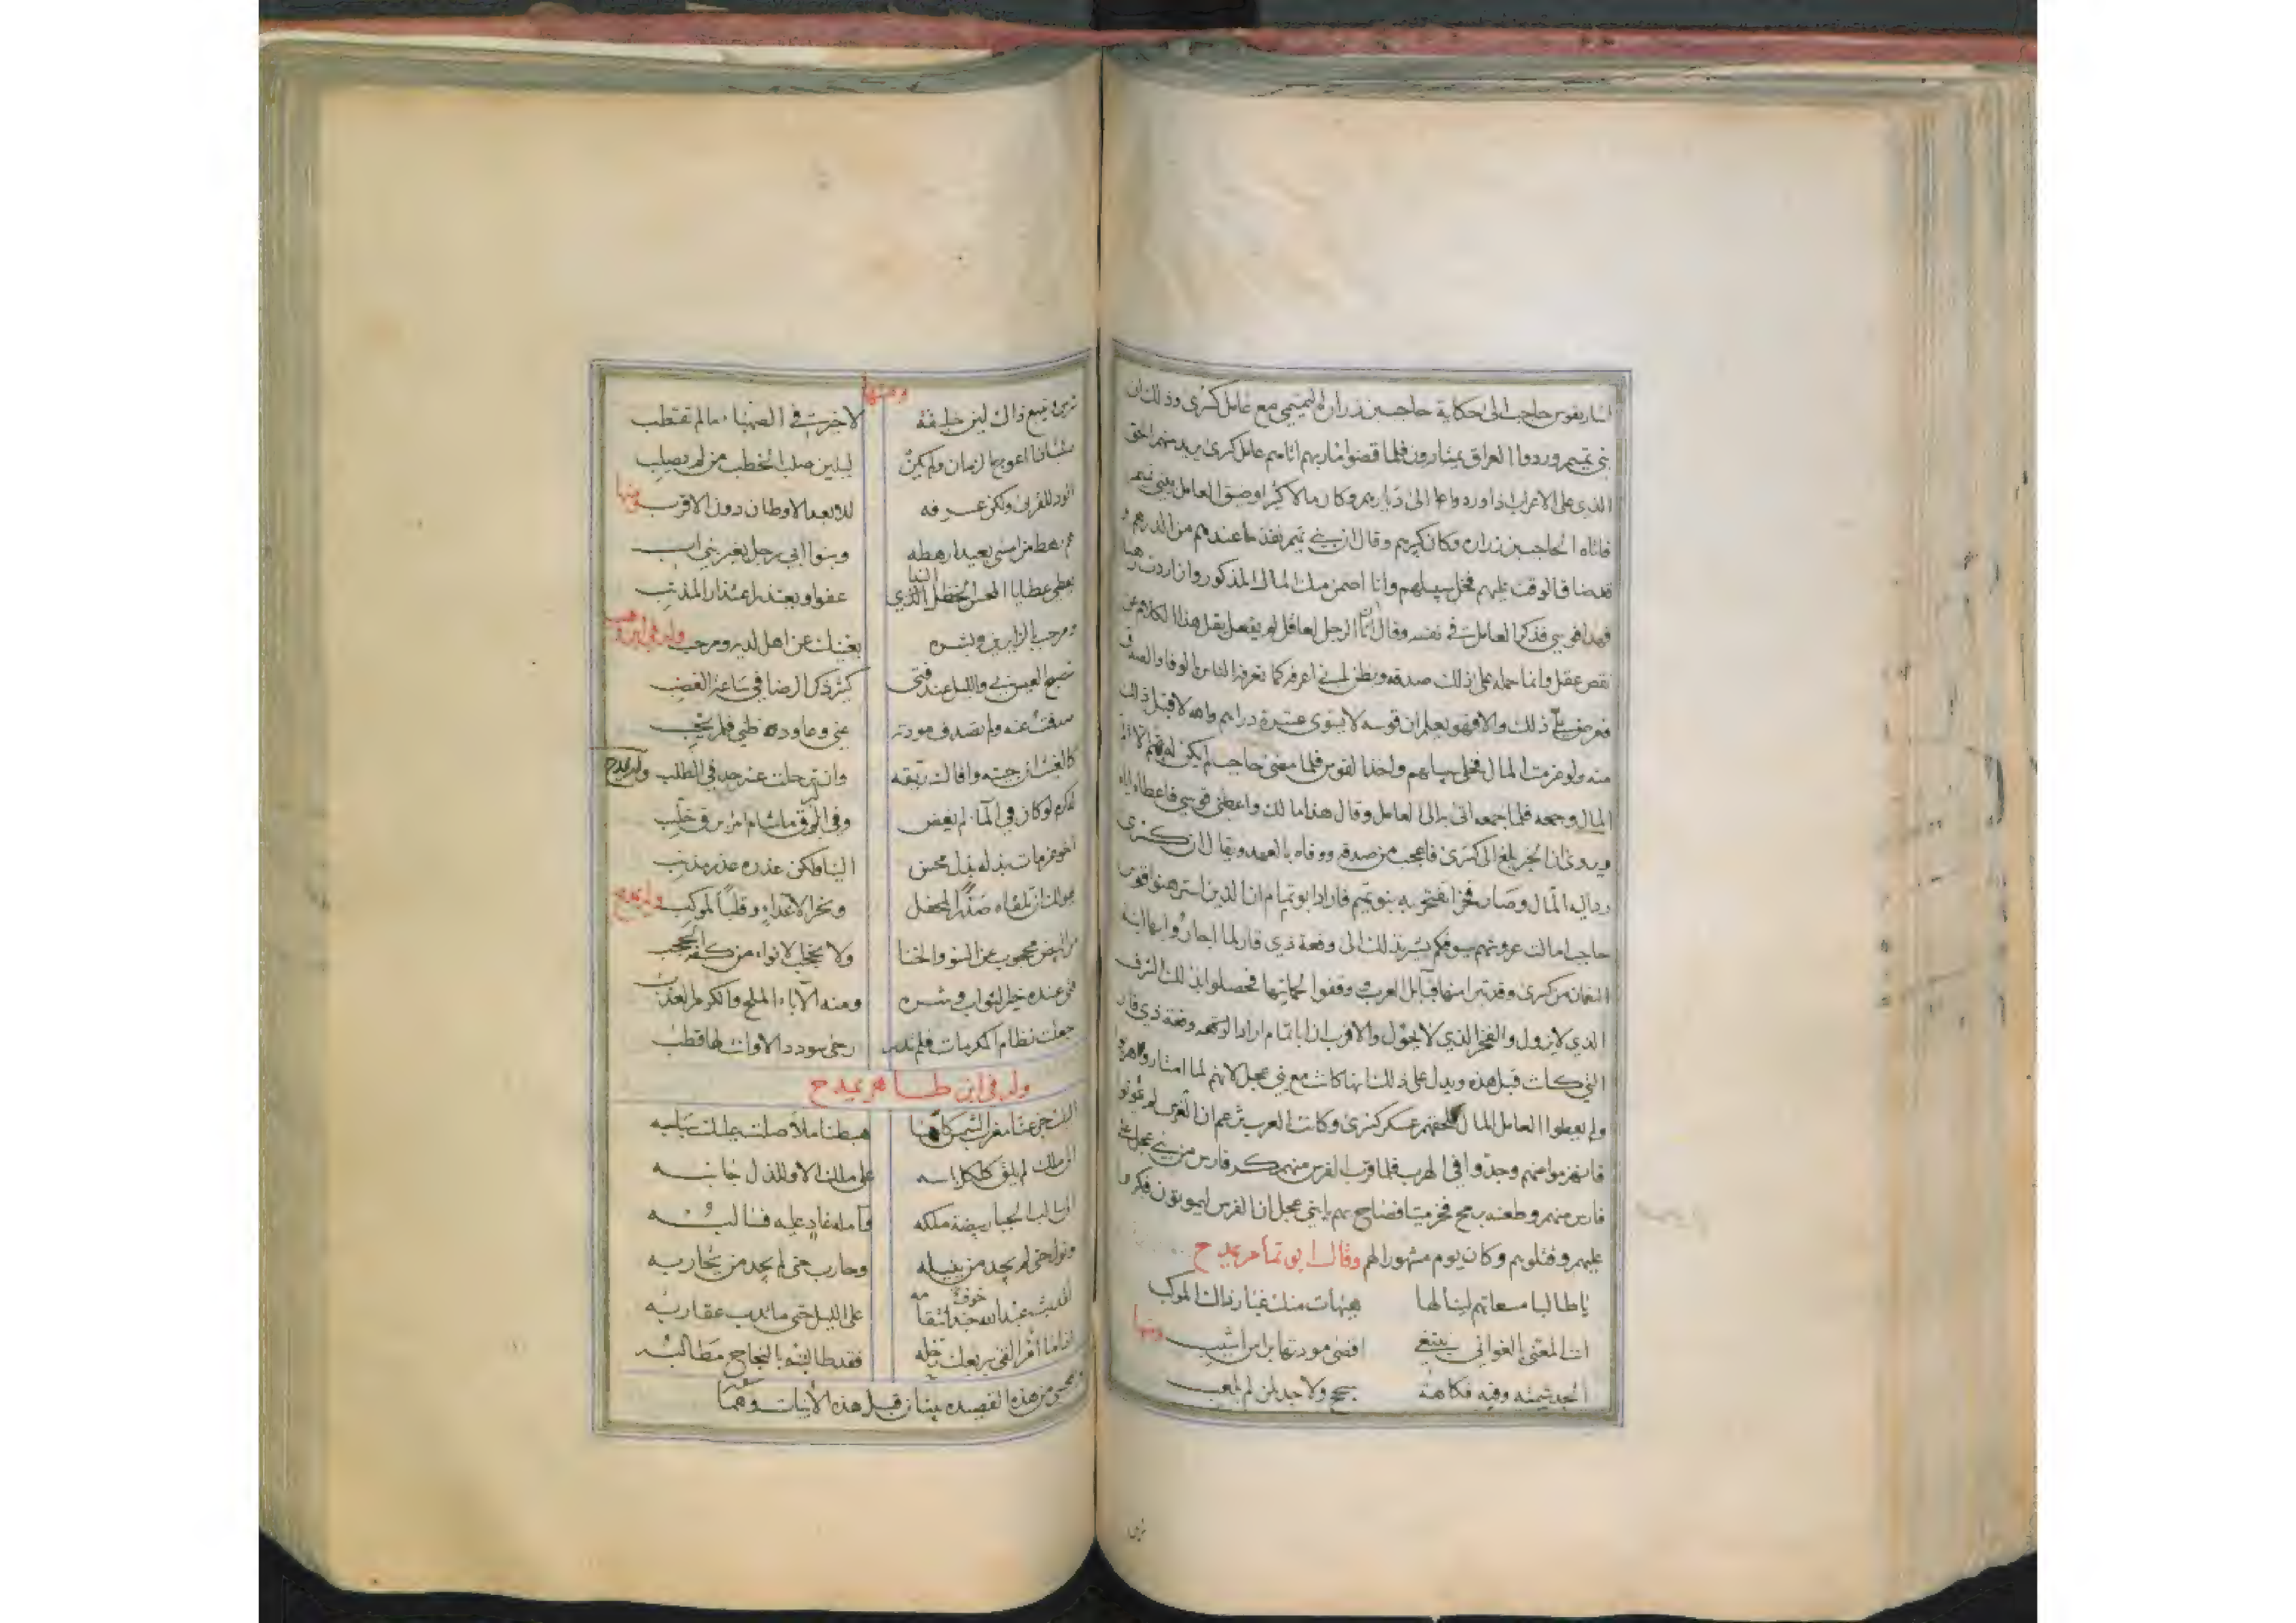 اشار بقوس حاجب الى حكاية حاجب بن زرارة التميمي مع عامل كسرى وذلك ان
بني تميم وردوا العراق يمتارون فلما قضوا مآربهم اتاهم عامل كسرى يريد منهم الحق
الذي على الاعراب اذا وردوا الى ديارهم وكان مالا كثيرا وضيق العامل بني تميم
فاتاه الحاجب بن زرارة وكان كريم وقال ان بني تميم نفذ ما عندهم من الدرهم و
فخل سبيلهم وانا اضمن لك المال المذكور وان اردت رهنا
فهذا قوسي فذكر العامل في نفسه وقال ان الرجل لعاقل لم يفعل بقل هذا الكلام عن
نقص عقل وانما حمله على ذلك صدقه ويظن اني اعرفه كما تعرفه الناس بالوفا والصدق
فعرض علي ذلك والا فهو يعلم ان قوسه لا يسوى عشرة دراهم والله لا قبل ذلك
منه ولو غرمت المال فخلى سبيلهم واخذ القوس فلما مضى حاجب لم يكن له هم الا
المال وجمعه فلما جمعه اتى به الى العامل وقال هذا مالك واعطني قوسي فاعطاه اياه
ويروى ان الخبر بلغ الى كسرى فاعجب من صدقه ووفاه بالعهد ويقال ان كسرى
رد اليه المال وصار فخرا تفتخر به بنو تميم فاراد ابو تمام ان الذين استرهنوا قوس
حاجب امالت عروشهم سيوفكم يشير بذلك الى وقعة ذي قار لما اجاروا
النعمان من كسرى وقد تبرا منها قبائل العرب وقفوا لحمايتها فحصلوا بذلك الشرف
الذي لا يزول والفخر الذي لا يحول والاقرب ان ابا تمام اراد الوقعة وقعة ذي قار
التي كانت قبل هذه ويدل على ذلك انها كانت مع بني عجل لانهم لما امتاروا
ولم يعطوا العامل المال لحقهم عسكر كسرى وكانت العرب تزعم ان الفرس لم يموتوا
فانهزموا منهم وجدوا في الهرب فلما قرب الفرس منهم كر فارس من بني عجل على
فارس منهم وطعنه برمح فخر ميتا فصاح بهم يا بني عجل ان الفرس ليموتون فكروا
عليهم وقتلوهم وكان يوم مشهورا لهم وقال ابو تمام يمدح
يا طالبا مسعاتهم لينالها هيهات منك غبار ذاك الموكب
انت المعنى بالغواني تبتغي اقصى مودتها براس اشيب ومنها
الجد شيمته وفيه فكاهة سجح ولا جد لمن لم يلعب
ترى
ومنها
ويتبع ذاك لين خليقة لا خير في الصهباء ما لم تقطب
اعوج الزمان ولم يكن ليلين صلب الخطب من لم يصلب
للقربى ولكن عرفه للابعد الاوطان دون الاقرب ومنها
رهط من امسى بعيدا رهطه وبنوا ابي رجل بغير بني اب
يعطي عطايا المحسن الخضل الندي عفوا ويعتذر اعتذار المذنب
ومرحب بالزايرين وبشره يغنيك عن اهل لديه ومرحب وله في ابن وهب
تصبح العيس بي والليل عند فتى كثير ذكر الرضا في ساعة الغضب
صدفت عنه ولم تصدف مودته عني وعاوده ظني فلم يخب
كالغيث ان جئته وافاك ريقه وان ترحلت عنه جد في الطلب وله يمدح
لو كان في الماء لم يغض وفي البرق ما شام امرؤ برق خلب
اخو عزمات بذله بذل محسن الينا ولكن عذره عذر مذنب
يهولك ان تلقاه صدرا لمحفل ونحرا لاعداء وقلبا لموكب وله يمدح
محجوب عن السوء والخنا ولا تحجب الانواء من كفه الحجب
عنده خير الثواب وشره ومنه الاباء الملح والكرم العذب
جعلت نظام المكرمات فلم تدر رحى سودد الا وانت لها قطب
وله في ابن طاهر يمدح
اليك جزعنا مغرب الشمس كلما هبطنا ملأ صلت عليك سباسبه
الى ملك لم يلق كلكل باسه على ملك الا وللذل جانبه
الى سالب الجبار بيضة ملكه وآمله غاد عليه فسالبه
ونول حتى لم يجد من ينيله وحارب حتى لم يجد من يحاربه
عبد الله خوف انتقامه على الليل حتى ما تدب عقاربه
اذا ما امرؤ القى بربعك رحله فقد طالبته بالنجاح مطالبه
من هذه القصيده بيتان قبل هذه الأبيات وهما